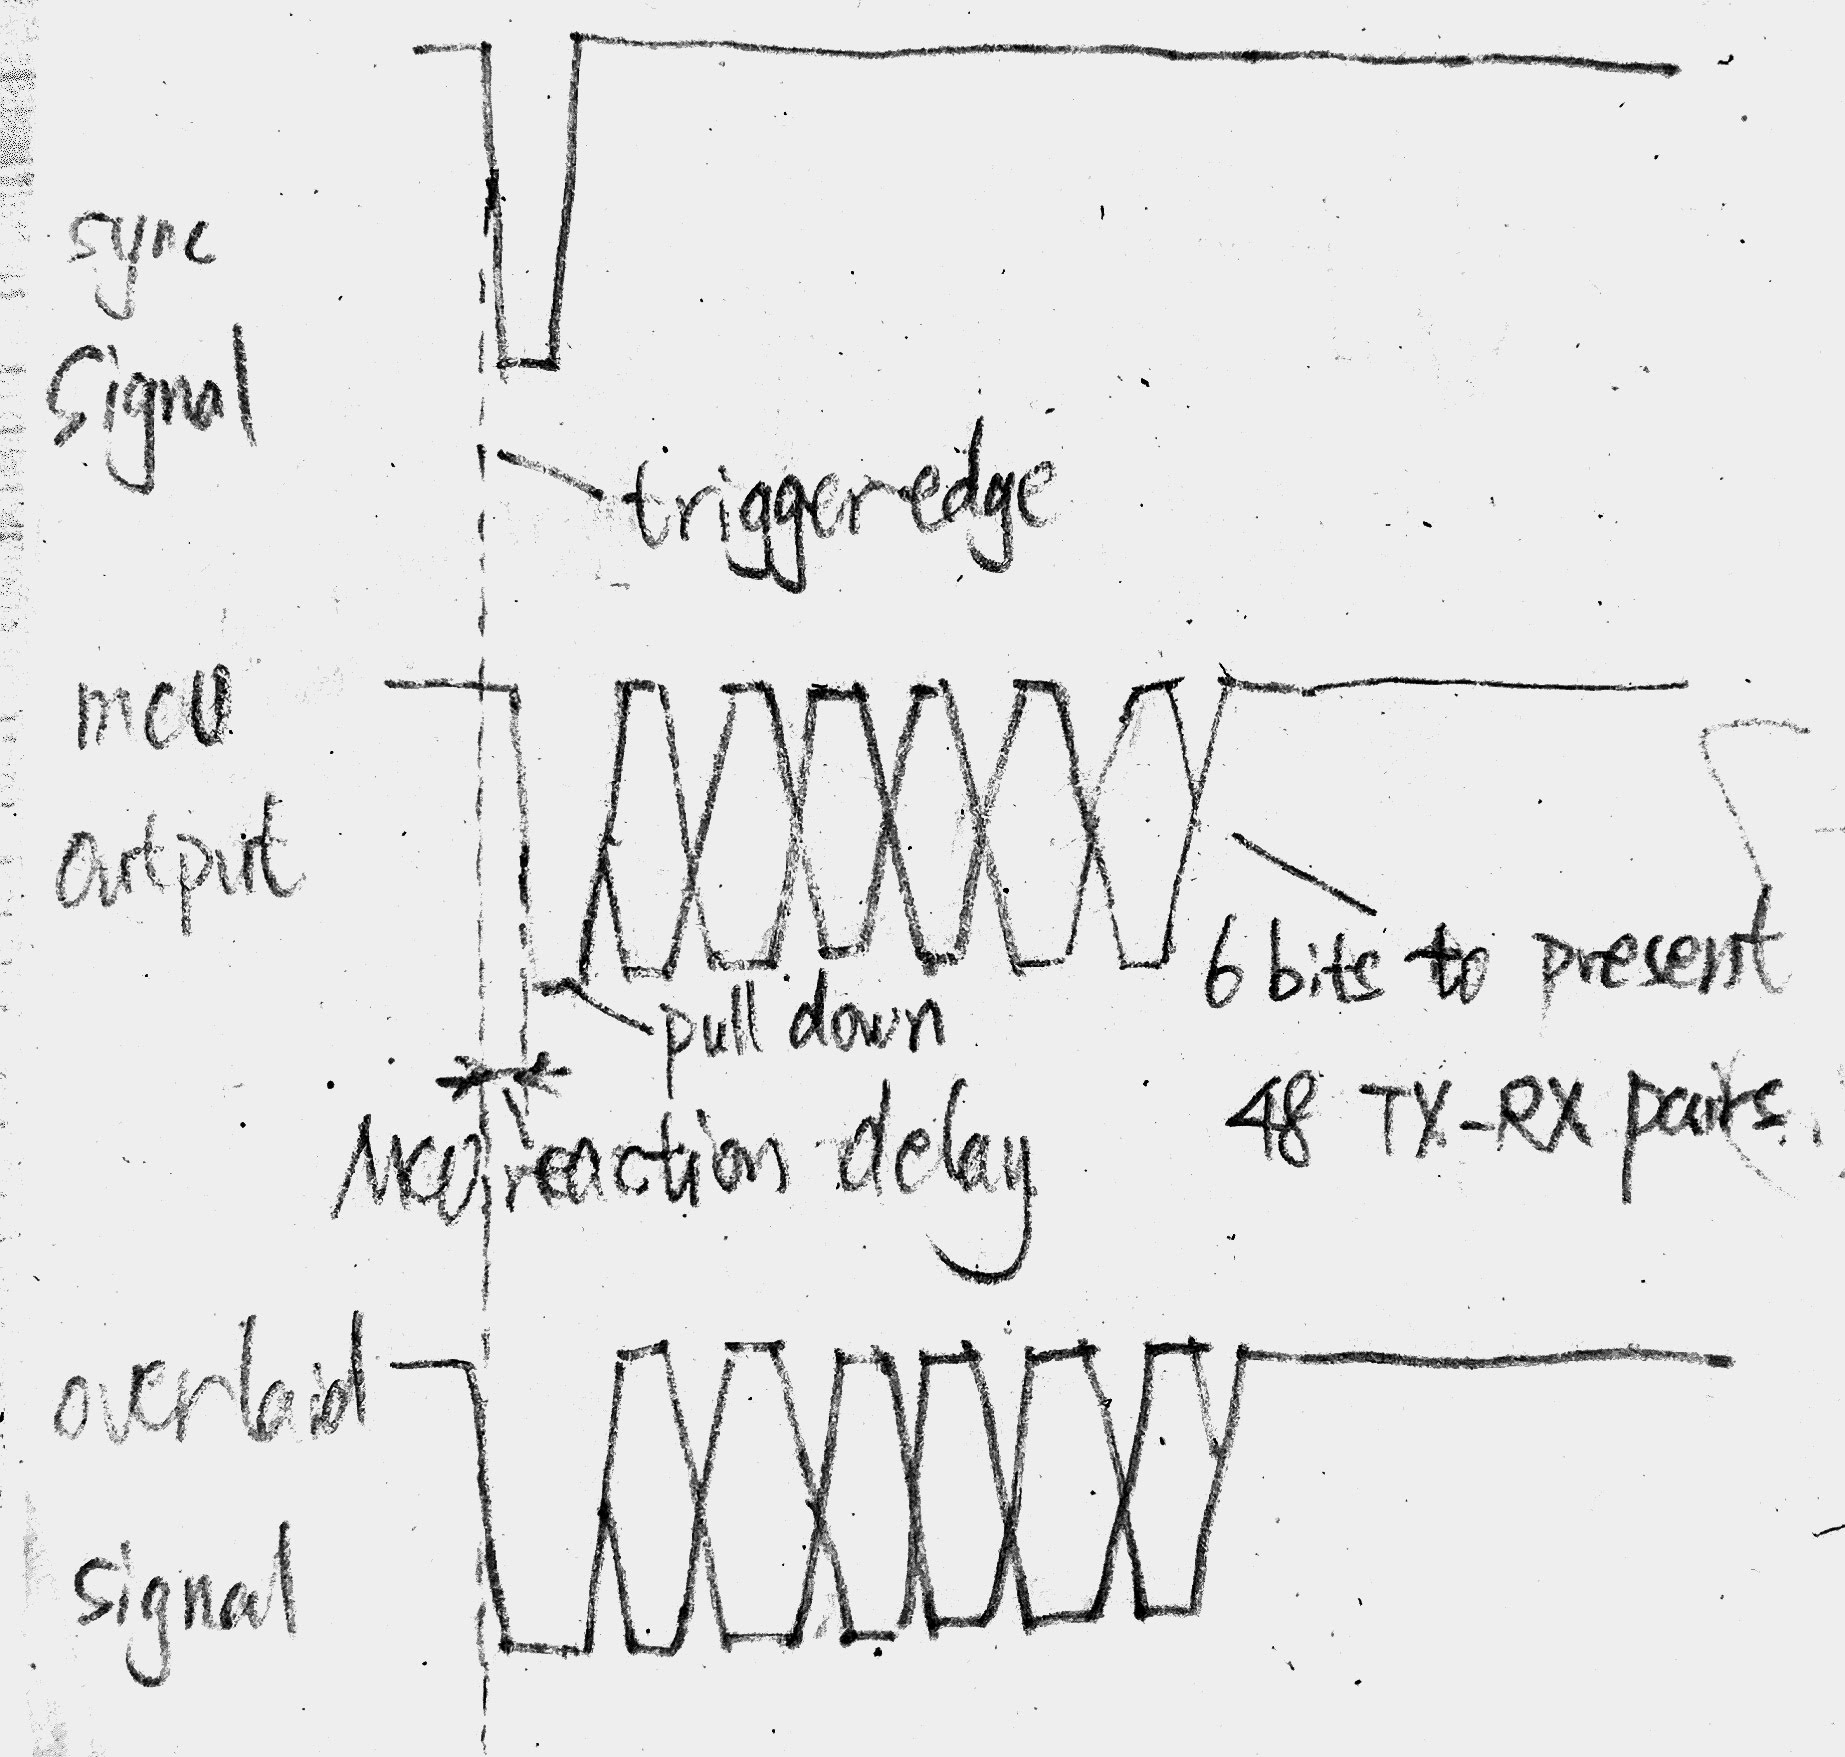 sync
signal
trigger edge
mcu
output
6 bits to present
pull down
48 TX-RX pairs.
MCU reaction delay
overlaid
signal